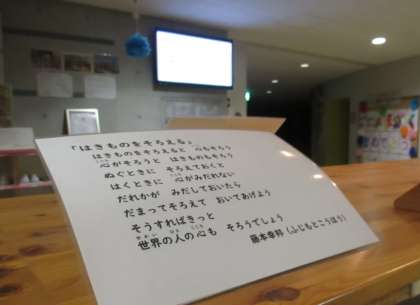 「はきものをそろえる」
はきものをそろえると 心もそろう
心がそろうと はきものもそろう
ぬぐときに そろえておくと
はくときに 心がみだれない
だれかが みだしておいたら
だまってそろえて おいてあげよう
そうすればきっと
世界の人の心も そろうでしょう
藤本幸邦（ふじもとこうほう）